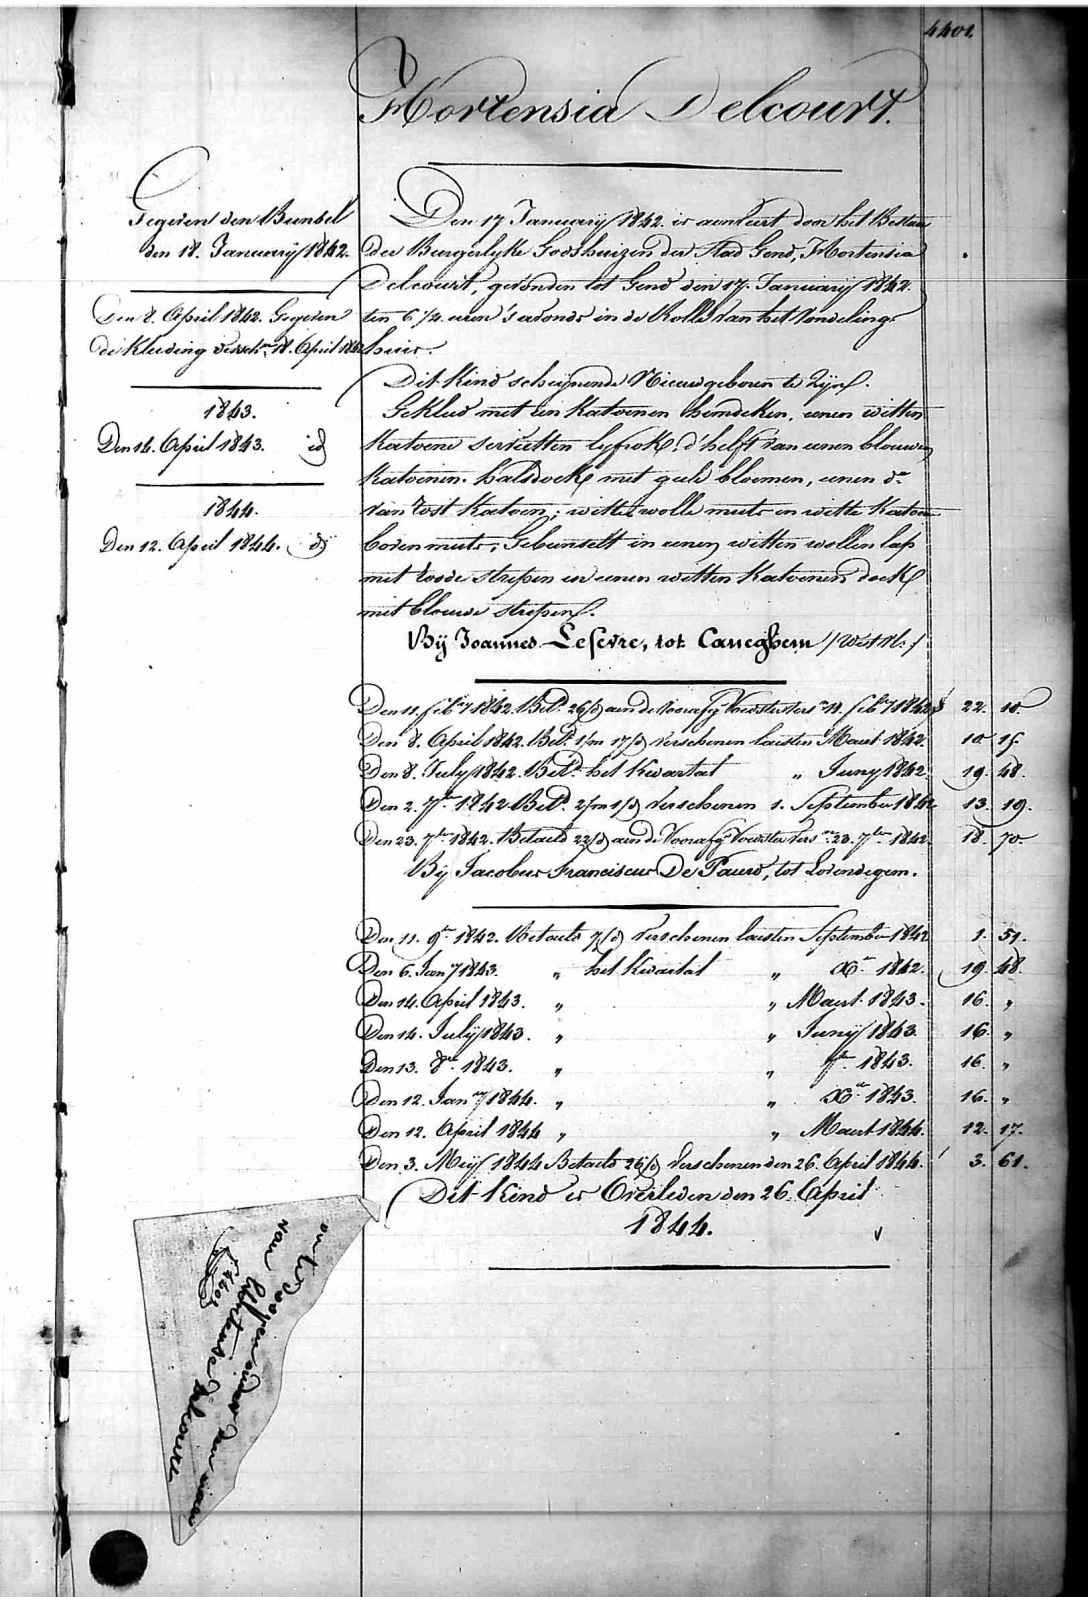 4401.
Hortensia Delcourt.
Gegeven den Bunsel
den 18. Januarij 1842.
Den 8. April 1842. Gegeven
de Kleeding versch.n 18. April 1842
1843.
Den 14. April 1843. id
1844.
Den 12. April 1844. id
Den 17 Januarij 1842. is aenveert door het Bestier
der Burgerlyke Godshuizen der stad Gend, Hortensia
Delcourt, gevonden tot Gend den 17. Januarij 1842.
ten 6 1/2 uren 's avonds in de Rolle van het Vondeling-
huis.
Dit Kind scheijnende Nieuwgeboren te Zijn.
Gekleed met een Katoenen hemdeken, eenen witten
Katoene servietten lyfrok, d'helft van eenen blouwen
Katoenen halsdoek met geele bloemen, eenen do
van rost Katoen; witte wolle muts en witte Katoene
boven muts, Gebunselt in eenen witten wollen lap
met roode strepen en eenen witten Katoenen doek
met blouwe strepen.
Bij Joannes Lefevre, tot Caneghem /West Vl:/
Den 11. feby 1842. Betd 26/d aen de voorafg Voedster versn 11. feby 1842 22. 10.
Den 8. April 1842. Betd 1/m 17/d verschenen laesten Maert 1842. 10 15.
Den 8. July 1842. Betd het Kwartael " Juny 1842. 19. 48.
Den 2. 7br 1842 Betd 2/m 1/d verschenen 1. September 1842 13. 19.
Den 23. 7ber 1842. Betaeld 22/d aen de voorafg Voedster versn 23. 7ber 1842. 18. 70.
Bij Jacobus Franciscus De Pauw, tot Lovendegem.
Den 11. 9br 1842. Betaeld 7/d verschenen laesten September 1842 1. 51.
Den 6. Jany 1843. " het Kwartael " Xbr 1842. 19. 48.
Den 14. April 1843. " " Maert 1843. 16. "
Den 14. Julij 1843. " " Junij 1843. 16. "
Den 13. 8br 1843. " " 7br 1843. 16. "
Den 12. Jany 1844. " " Xbr 1843. 16. "
Den 12. April 1844 " " Maert 1844. 12. 17.
Den 3. Meij 1844 Betaeld 26/d verschenen den 26. April 1844. 3. 61.
Dit Kind is Overleden den 26. April
1844.
van Hortensia Delcourt